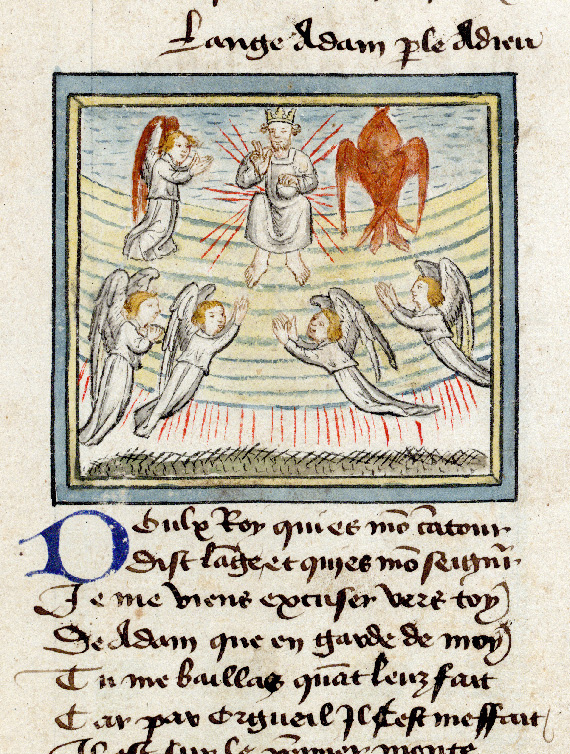 Lange Adam ple Adieu
Doulx Roy qui es mō c̄atour
dist lāge et qui es mō seign̄r
Je me viens excuser vers toy
De Adam que en garde de moy
Tu me baillas quāt leuz fait
Car par orgueil Jl cest meffait
Jl est sur le p̄mier monte